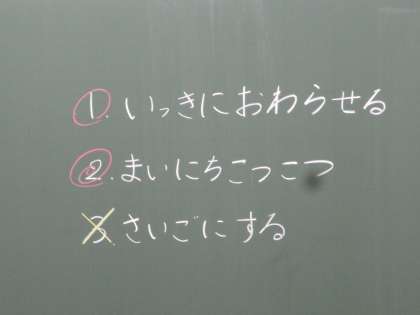 1. いっきにおわらせる
2. まいにちこつこつ
3. さいごにする